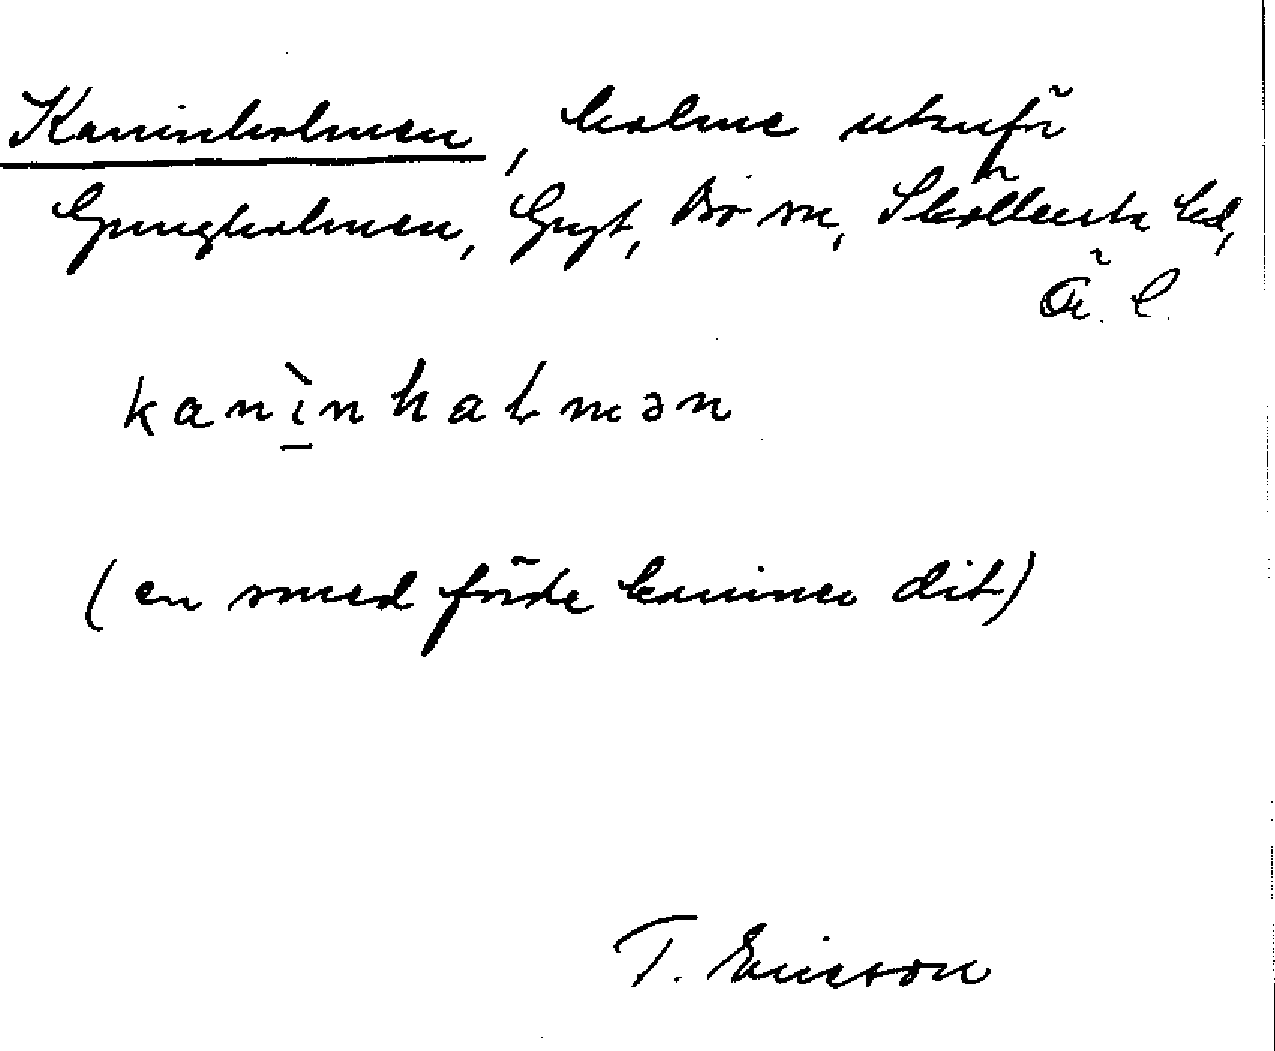 Kaninholmen, holme utanför
Gungholmen, Gryt, Bö sn, Skällerts hd,
Ör. l.
kanìnhalmən
(en smed förde kaniner dit)
T. Ericson